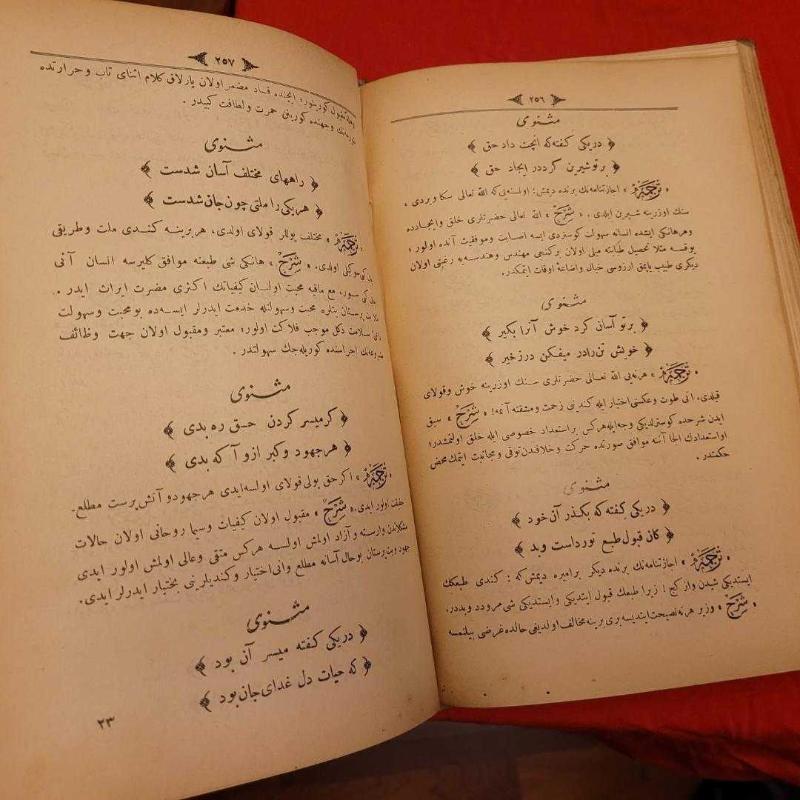 ٢٥٦
مثنوی
﴿ در یکی گفته که آنچت داد حق ﴾
﴿ بر تو شیرین کرد در ایجاد حق ﴾
« ترجمه » اجازتنامه‌نك برنده دیمش: اولسنه‌یی که الله تعالی سکا ویردی ،
سنك اوزرینه شیرین ایلدی. « شرح » الله تعالی حضرتلری خلق وایجادده
وهرهانکی ایشده انسانه سهولت کوستردی ایسه اصابت وموفقیت آنده اولور،
یوقسه مثلا تحصیل طبابته میلی اولان برکنجی مهندس وهندسه‌یه رغبتی اولان
دیکری طبیب یاپمق آرزوسی خیال واضاعهٔ اوقات ایتمکدر.
مثنوی
﴿ بر تو آسان کرد خوش آنرا بکیر ﴾
﴿ خویشتن را در میفکن در زخیر ﴾
« ترجمه » هرنه‌یی الله تعالی حضرتلری سنك اوزرینه خوش وقولای
قیلدی، آنی طوت وعکسنی اختیار ایله کندینی زحمت ومشقته آتمه! « شرح » سبق
ایدن شرحده کوسترلدیکی وجهله هرکس براستعداد خصوصی ایله خلق اولنمشدر؛
استعدادك الجا آتنه موافق صورتده حرکت وخلافندن توقی ومجانبت ایتمك محض
حکمتدر.
مثنوی
﴿ در یکی گفته که بگذر آن خود ﴾
﴿ کان قبول طبع تو ردست وبد ﴾
« ترجمه » اجازتنامه‌نك برنده دیکر برامیره دیمش که : کندی طبعکك
ایستدیکی شیدن وار کچ! زیرا طبعك قبول ایتدیکی وایستدیکی شی مردود وبددر.
« شرح » وزیر هرنه نصیحت ایتدیسه بری برینه مخالف اولدیغی حالده غرضی بیلنمسه
٢٥٧
کورینور؛ ایچنده فساد مضمر اولان پارلاق کلام اثنای تاب وحرارتده
وجهنده کورینن حمرت ولطافت کبیدر .
مثنوی
﴿ راههای مختلف آسان شدست ﴾
﴿ هر یکی را ملتی چون جان شدست ﴾
« ترجمه » مختلف یوللر قولای اولدی، هربرینه کندی ملت وطریقی
جان کبی اولدی. « شرح » هانکی شی طبیعته موافق کلیرسه انسان آنی
سور، مع مافیه محبت اولنان کیفیاتك اکثری مضرت ایراث ایدر .
پرستان بتلره محبت وسهولتله خدمت ایدرلر ایسه‌ده بومحبت وسهولت
سلامت دکل موجب فلاکت اولور؛ معتبر ومقبول اولان جهت وظائف
اجراسنده کوریله‌جك سهولتدر.
مثنوی
﴿ کر میسر کردن حق ره بدی ﴾
﴿ هر جهود وکبر ازو آکه بدی ﴾
« ترجمه » اکر حق یولی قولای اولسه ایدی هر جهود وآتش پرست مطلع
حقیقت اولور ایدی. « شرح » مقبول اولان کیفیات وسیما روحانی اولان حالات
مشکلاتدن وارسته وآزاد اولمش اولسه هرکس متقی وعالی اولمش اولور ایدی
جهود وبت پرستان بوحال آسانه مطلع وانی اختیار وکندیلرینی بختیار ایدرلر ایدی.
مثنوی
﴿ در یکی گفته میسر آن بود ﴾
﴿ که حیات دل غدای جان بود ﴾
٢٣